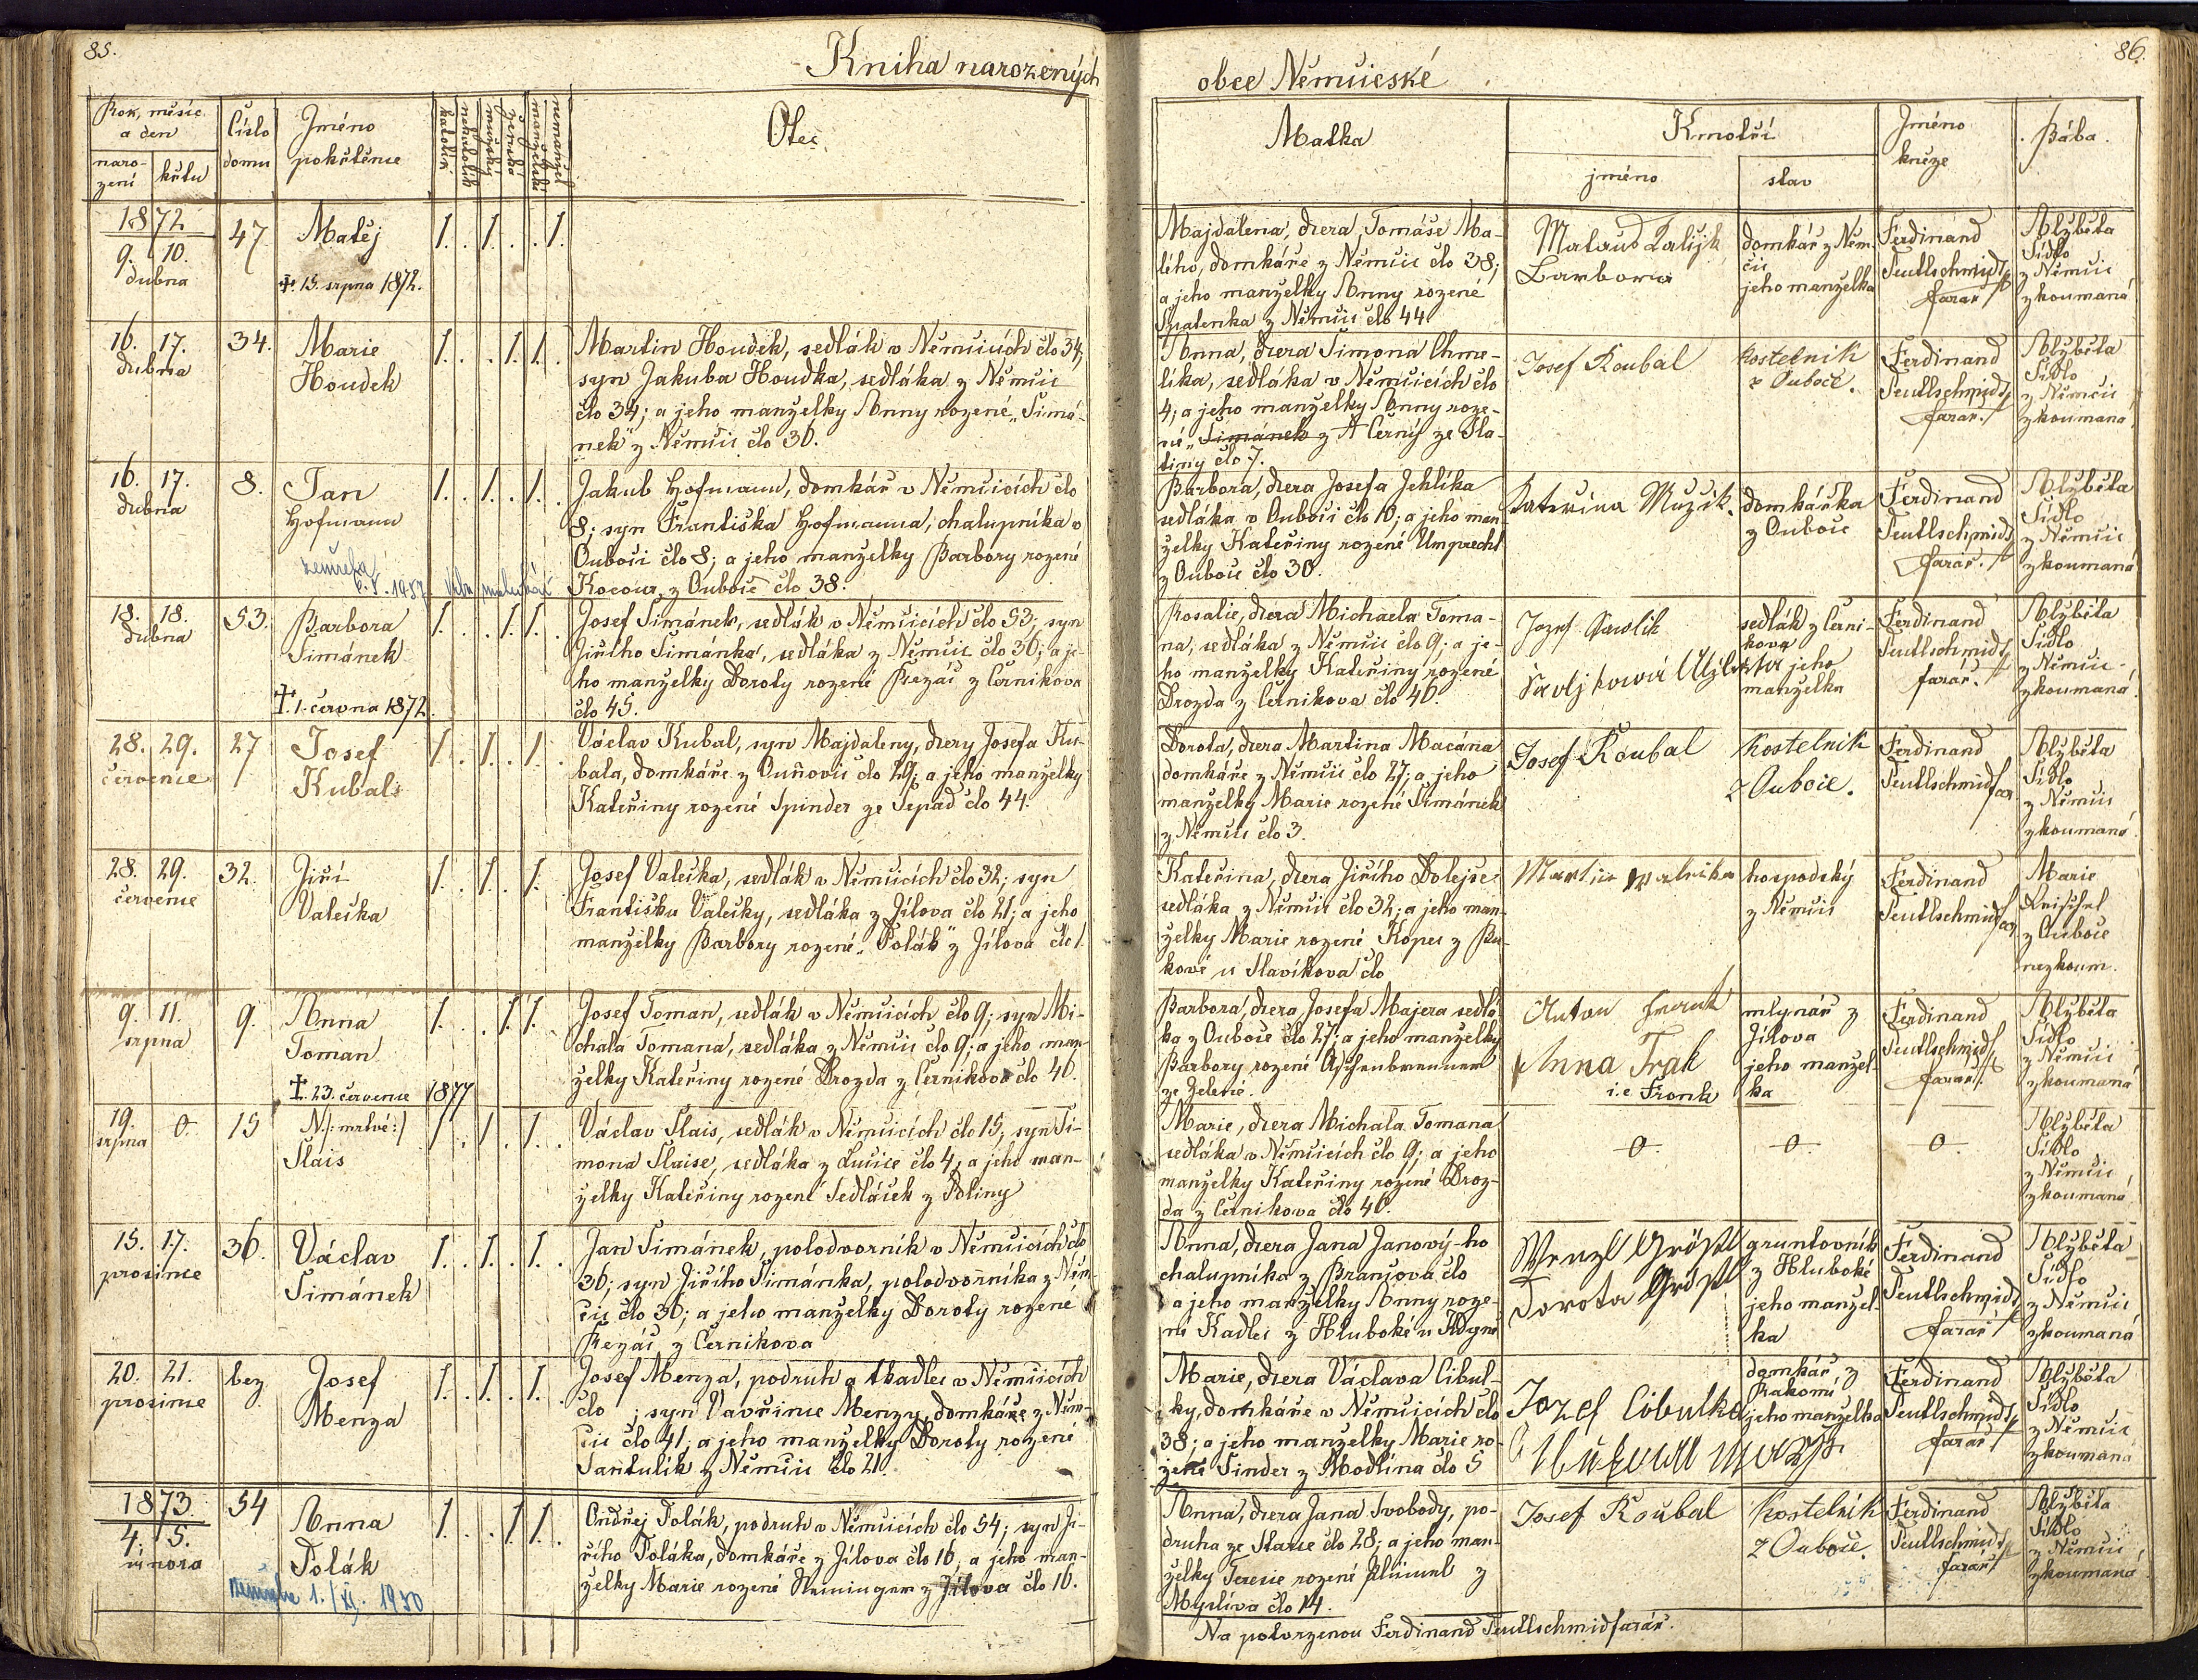 85.
Kniha narozených
Rok, měsíc
a den
naro-
zení
křtu
Číslo
domu
Jméno
pokřtěnce
katolík
nekatolík
mužský
ženské
manželské
nemanžel.
Otec
1872
9. 10.
dubna
47
Matěj
†. 15. srpna 1872.
1. . 1. . . 1.
16. 17.
dubna
34.
Marie
Houdek
1. . . 1. 1. .
Martin Houdek, sedlák v Němčicích člo 34,
syn Jakuba Houdka, sedláka z Němčic
člo 34; a jeho manželky Anny rozené „Šimá-
nek" z Němčic člo 36.
16. 17.
dubna
8.
Jan
Hofmann
1. . 1. . 1. .
Jakub Hofmann, domkář v Němčicích člo
8; syn Františka Hofmanna, chalupníka v
Oubočí člo 8; a jeho manželky Barbory rozené
Kocour, z Ouboče člo 38.
18. 18.
dubna
53.
Barbora
Šimánek
†. 1. června 1872.
1. . . 1. 1. .
Josef Šimánek, sedlák v Němčicích člo 53; syn
Jiřího Šimánka, sedláka z Němčic člo 36; a je-
ho manželky Doroty rozené Řezáč z Černikova
člo 45.
28. 29.
července
27
Josef
Kubal
1. . 1. . 1. .
Václav Kubal, syn Majdaleny, dcery Josefa Ku-
bala, domkáře z Ouňovic člo 29; a jeho manželky
Kateřiny rozené Spinder ze Sepad člo 44.
28. 29.
července
32.
Jiří
Valečka
1. . 1. . 1. .
Josef Valečka, sedlák v Němčicích člo 32; syn
Františka Valečky, sedláka z Jílova člo 21; a jeho
manželky Barbory rozené „Polák" z Jílova člo 1.
9. 11.
srpna
9.
Anna
Toman
†. 23. července 1877
1. . . 1. 1. .
Josef Toman, sedlák v Němčicích člo 9; syn Mi-
chala Tomana, sedláka z Němčic člo 9; a jeho man-
želky Kateřiny rozené Drozda z Černikova člo 46.
19.
srpna
0.
15
N. /: mrtvé :/
Slais
1. . 1. . 1. .
Václav Slais, sedlák v Němčicích člo 15; syn Ši-
mona Slaise, sedláka z Lučice člo 4; a jeho man-
želky Kateřiny rozené Sedláček z Poliny
15. 17.
prosince
36.
Václav
Šimánek
1. . 1. . 1. .
Jan Šimánek, polodvorník v Němčicích člo
36; syn Jiřího Šimánka, polodvorníka z Něm-
čic člo 36; a jeho manželky Doroty rozené
Řezáč z Černikova
20. 21.
prosince
bez
Josef
Menza
1. . 1. . 1. .
Josef Menza, podruh a tkadlec v Němčicích
člo ; syn Vavřince Menzy, domkáře z Něm-
čic člo 41; a jeho manželky Doroty rozené
Santulík z Němčic člo 21.
1873.
4. 5.
února
54
Anna
Polák
zemřela 1./XI. 1950
1. . . 1. 1. .
Ondřej Polák, podruh v Němčicích člo 54; syn Ji-
řího Poláka, domkáře z Jílova člo 16; a jeho man-
želky Marie rozené z Jílova člo 16.
86.
obce Němčické
Matka
Kmotři
jméno
stav
Jméno
kněze
Bába.
Majdalena, dcera Tomáše Ma-
lého, domkáře z Němčic člo 38;
a jeho manželky Anny rozené
Špatenka z Němčic člo 44.
Barbora
domkář z Něm-
čic
jeho manželka
Ferdinand
Teutlschmidt
farář
Alžběta
Sídlo
z Němčic
zkoumaná
Anna, dcera Šimona Chme-
líka, sedláka v Němčicích člo
4; a jeho manželky Anny roze-
né „Šimánek z A Černý ze Sla-
tiny člo 7.
Josef Koubal
kostelník
z Ouboče.
Ferdinand
Teutlschmidt
farář.
Alžběta
Sídlo
z Němčic
zkoumaná
Barbora, dcera Josefa Jehlíka
sedláka v Oubočí člo 10; a jeho man-
želky Kateřiny rozené Umprecht
z Ouboče člo 30.
Kateřina Muzik.
domkářka
z Ouboče
Ferdinand
Teutlschmidt
farář.
Alžběta
Sídlo
z Němčic
zkoumaná
Rosalie, dcera Michaela Toma-
na, sedláka z Němčic člo 9; a je-
ho manželky Kateřiny rozené
Drozda z Černikova člo 46.
Jozef Pawlik
sedlák z Černi-
kova
jeho
manželka
Ferdinand
Teutlschmidt
farář.
Alžběta
Sídlo
z Němčic
zkoumaná.
Dorota, dcera Martina Macána
domkáře z Němčic člo 27; a jeho
manželky Marie rozené Šimánek
z Němčic člo 3.
Josef Koubal
kostelník
z Ouboče.
Ferdinand
Teutlschmidt far
Alžběta
Sídlo
z Němčic
zkoumaná.
Kateřina, dcera Jiřího Dolejše
sedláka z Němčic člo 32; a jeho man-
želky Marie rozené Kopec z Bu-
kové u Slavíkova člo
Martin
hospodský
z Němčic
Ferdinand
Teutlschmidt far
Marie
z Ouboče
nezkoum.
Barbora, dcera Josefa Majera sedlá-
ka z Ouboče člo 27; a jeho manželky
Barbory rozené Aschenbrenner
ze Zelené.
Anton
Anna Frak
i.e. Fronk
mlynář z
Jílova
jeho manžel-
ka
Ferdinand
Teutlschmidt
farář.
Alžběta
Sídlo
z Němčic
zkoumaná
Marie, dcera Michala Tomana
sedláka v Němčicích člo 9; a jeho
manželky Kateřiny rozené Droz-
da z Černikova člo 46.
0. 0. 0.
Alžběta
Sídlo
z Němčic
zkoumaná
Anna, dcera Jana Janový-ho
chalupníka z Branšova člo
a jeho manželky Anny roze-
né Kadlec z Hluboké u Kdyně
Wenzl Gröpl
Dorota Gröpl
gruntovník
z Hluboké
jeho manžel-
ka
Ferdinand
Teutlschmidt
farář
Alžběta
Sídlo
z Němčic
zkoumaná
Marie, dcera Václava Cibul-
ky, domkáře v Němčicích člo
38; a jeho manželky Marie ro-
zené Sinder z Modlína člo 5
Jozef Cibulka
domkář z
jeho manželka
Ferdinand
Teutlschmidt
farář
Alžběta
Sídlo
z Němčic
zkoumaná
Anna, dcera Jana Svobody, po-
druha ze Starce člo 28; a jeho man-
želky Terezie rozené z
Myslíva člo 14.
Josef Koubal
kostelník
z Ouboče.
Ferdinand
Teutlschmidt
farář
Alžběta
Sídlo
z Němčic
zkoumaná
Na potvrzenou Ferdinand Teutlschmid farář.